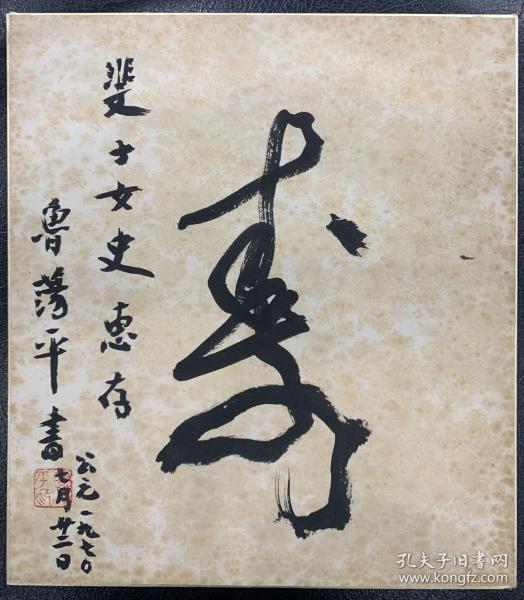 壽
斐士女史惠存
魯蕩平書
公元一九七〇
七月廿二日
孔夫子旧书网
www.kongfz.com